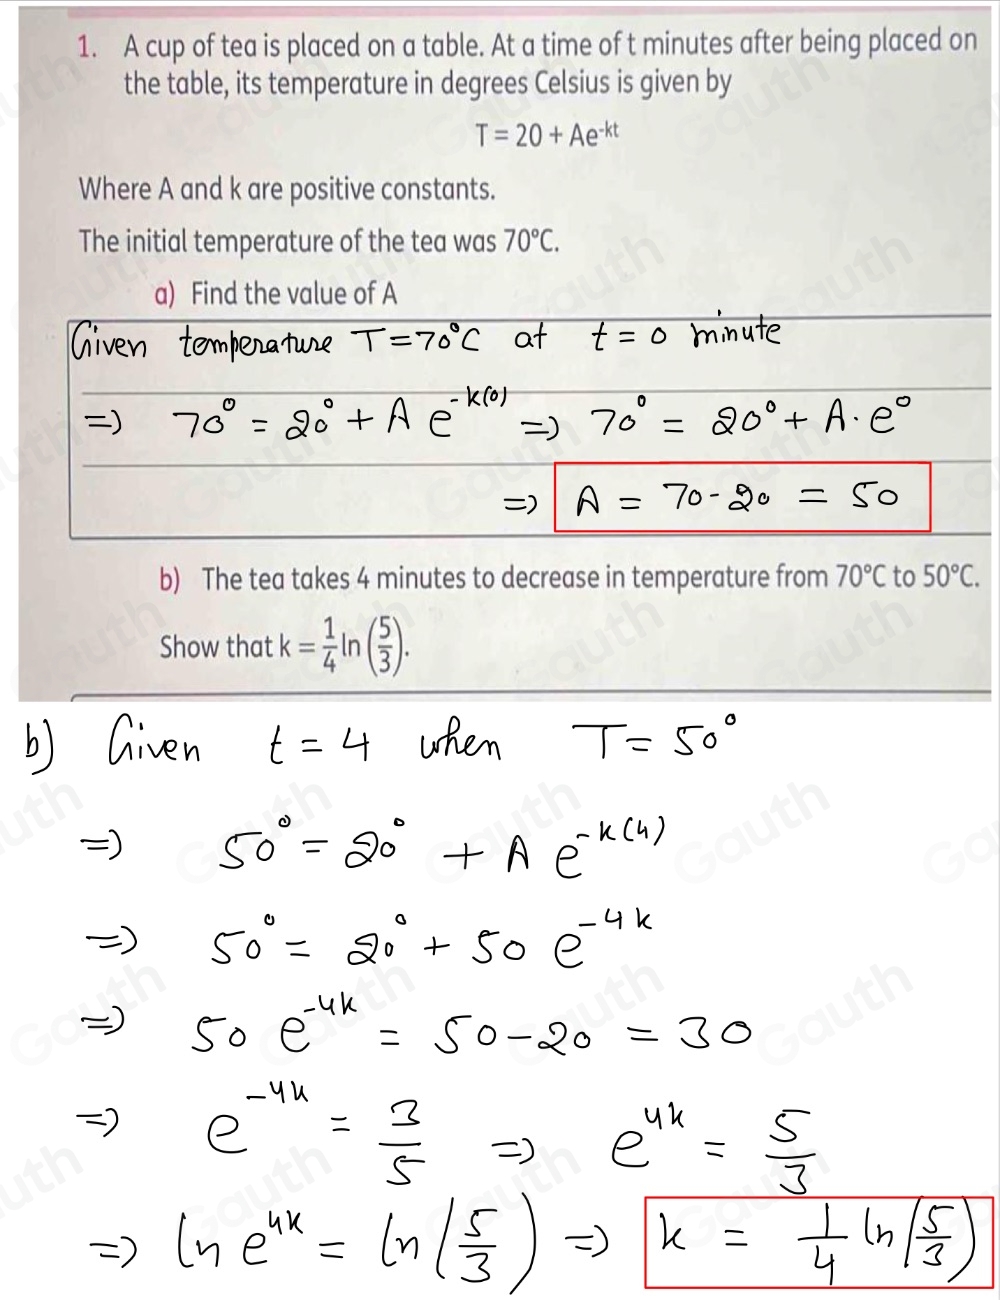 1. A cup of tea is placed on a table. At a time of t minutes after being placed on
the table, its temperature in degrees Celsius is given by
T = 20 + Ae^-kt
Where A and k are positive constants.
The initial temperature of the tea was 70°C.
a) Find the value of A
Given temperature T=70°C at t=0 minute
=> 70° = 20° + A e^-k(0) => 70° = 20° + A·e°
=> A = 70-20 = 50
b) The tea takes 4 minutes to decrease in temperature from 70°C to 50°C.
Show that k = 1/4 ln (5/3).
b) Given t = 4 when T = 50°
=> 50° = 20° + A e^-k(4)
=> 50° = 20° + 50 e^-4k
=> 50 e^-4k = 50-20 = 30
=> e^-4k = 3/5 => e^4k = 5/3
=> ln e^4k = ln (5/3) => k = 1/4 ln (5/3)
Gauth